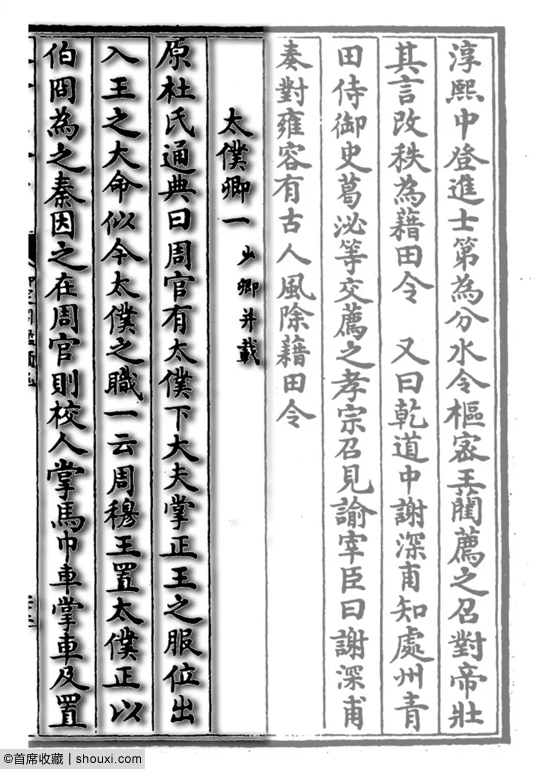 淳熙中登進士第為分水令樞密王藺薦之召對帝壯
其言改秩為藉田令　又曰乾道中謝深甫知處州青
田侍御史葛泌等交薦之孝宗召見諭宰臣曰謝深甫
奏對雍容有古人風除藉田令
太僕卿一 少卿并載
原杜氏通典曰周官有太僕下大夫掌正王之服位出
入王之大命似今太僕之職一云周穆王置太僕正以
伯冏為之秦因之在周官則校人掌馬巾車掌車及置
©首席收藏 | shouxi.com